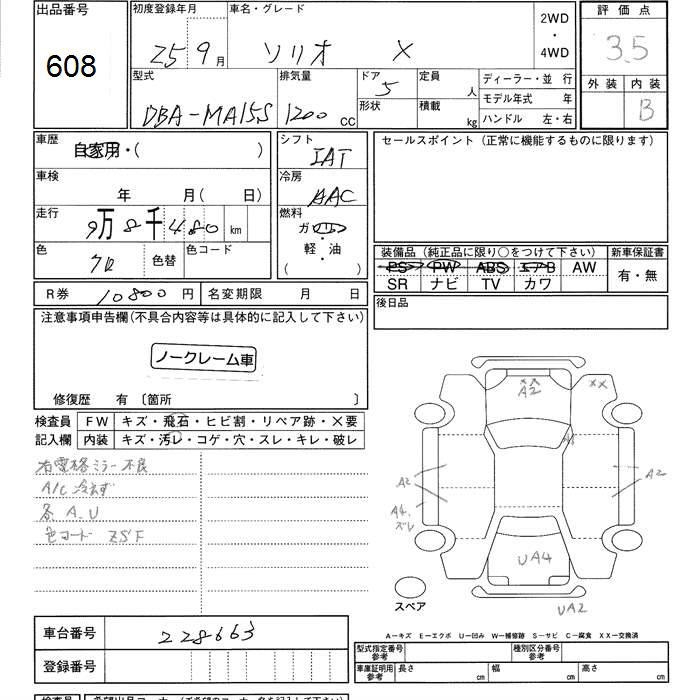 出品番号
608
初度登録年月
25 9月
車名・グレード
ソリオ X
2WD
・
4WD
評価点
3.5
外装 内装
B
型式
DBA-MA15S
排気量
1200 cc
ドア
5
形状
定員
人
積載
kg
ディーラー・並 行
モデル年式 年
ハンドル 左・右
車歴
自家用・( )
車検
年 月(日)
走行
9万8千480 km
色
クロ
色替
色コード
R券 10800円
名変期限 月 日
シフト
IAT
冷房
AAC
燃料
ガソリン
・
軽・油
( )
セールスポイント(正常に機能するものに限ります)
装備品(純正品に限り○をつけて下さい)
PS PW ABS エアB AW
SR ナビ TV カワ
新車保証書
有・無
後日品
注意事項申告欄(不具合内容等は具体的に記入して下さい)
ノークレーム車
修復歴 有〔箇所 〕
検査員 FW キズ・飛石・ヒビ割・リペア跡・X要
記入欄 内装 キズ・汚レ・コゲ・穴・スレ・キレ・破レ
右電格ミラー不良
A/C冷えず
各A、U
色コード ZSF
XX
A2
XX
A1
A2
A4、
ズレ
A2
UA4
UA2
スペア
A-キズ E-エクボ U-凹み W-補修跡 S-サビ C-腐食 XX-交換済
車台番号
228663
登録番号
型式指定番号
参考
種別区分番号
参考
車庫証明用
参考
長さ cm
幅 cm
高さ cm